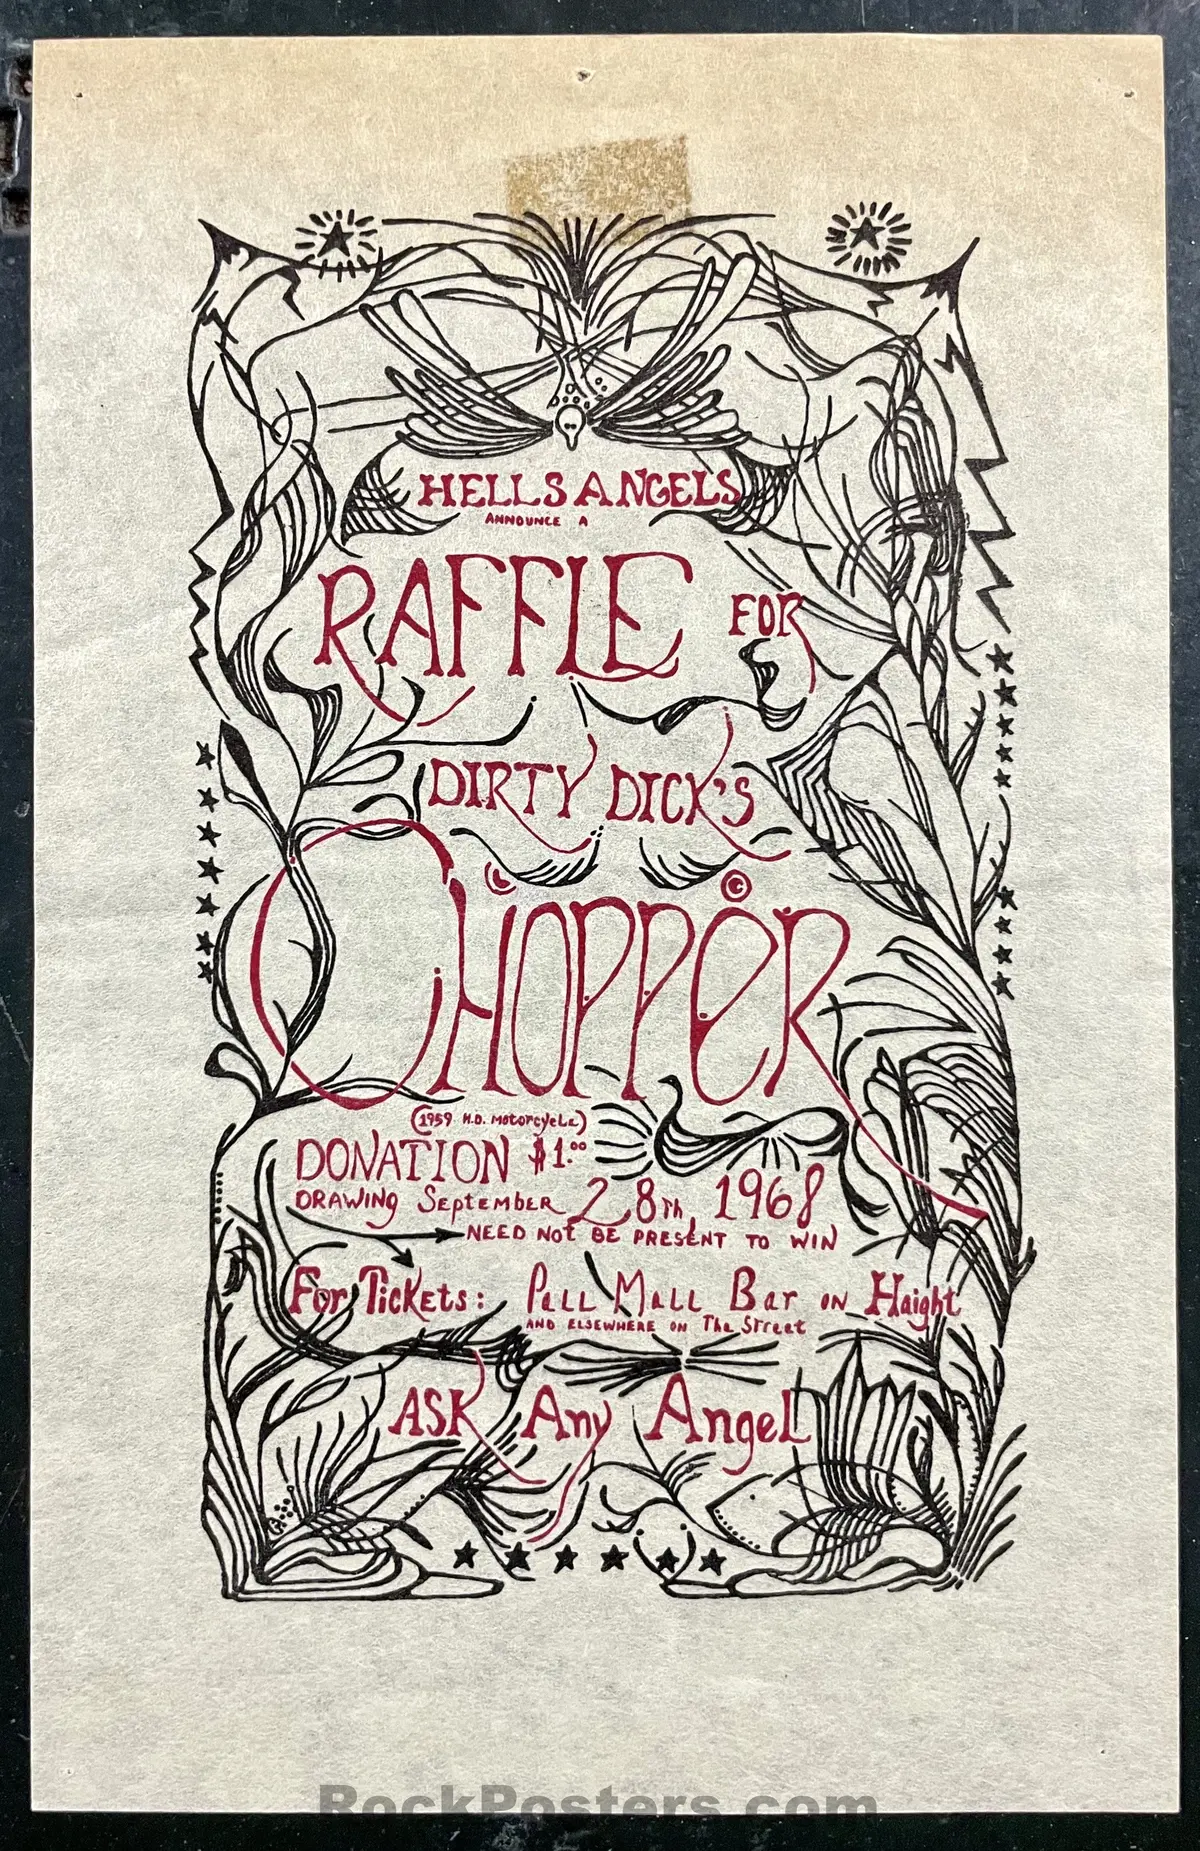 HELLS ANGELS
ANNOUNCE A
RAFFLE FOR
DIRTY DICK'S
CHOPPER
(1959 H.D. MOTORCYCLE)
DONATION $1.00
DRAWING SEPTEMBER 28TH, 1968
NEED NOT BE PRESENT TO WIN
FOR TICKETS: PALL MALL BAR ON HAIGHT
AND ELSEWHERE ON THE STREET
ASK ANY ANGEL
RockPosters.com